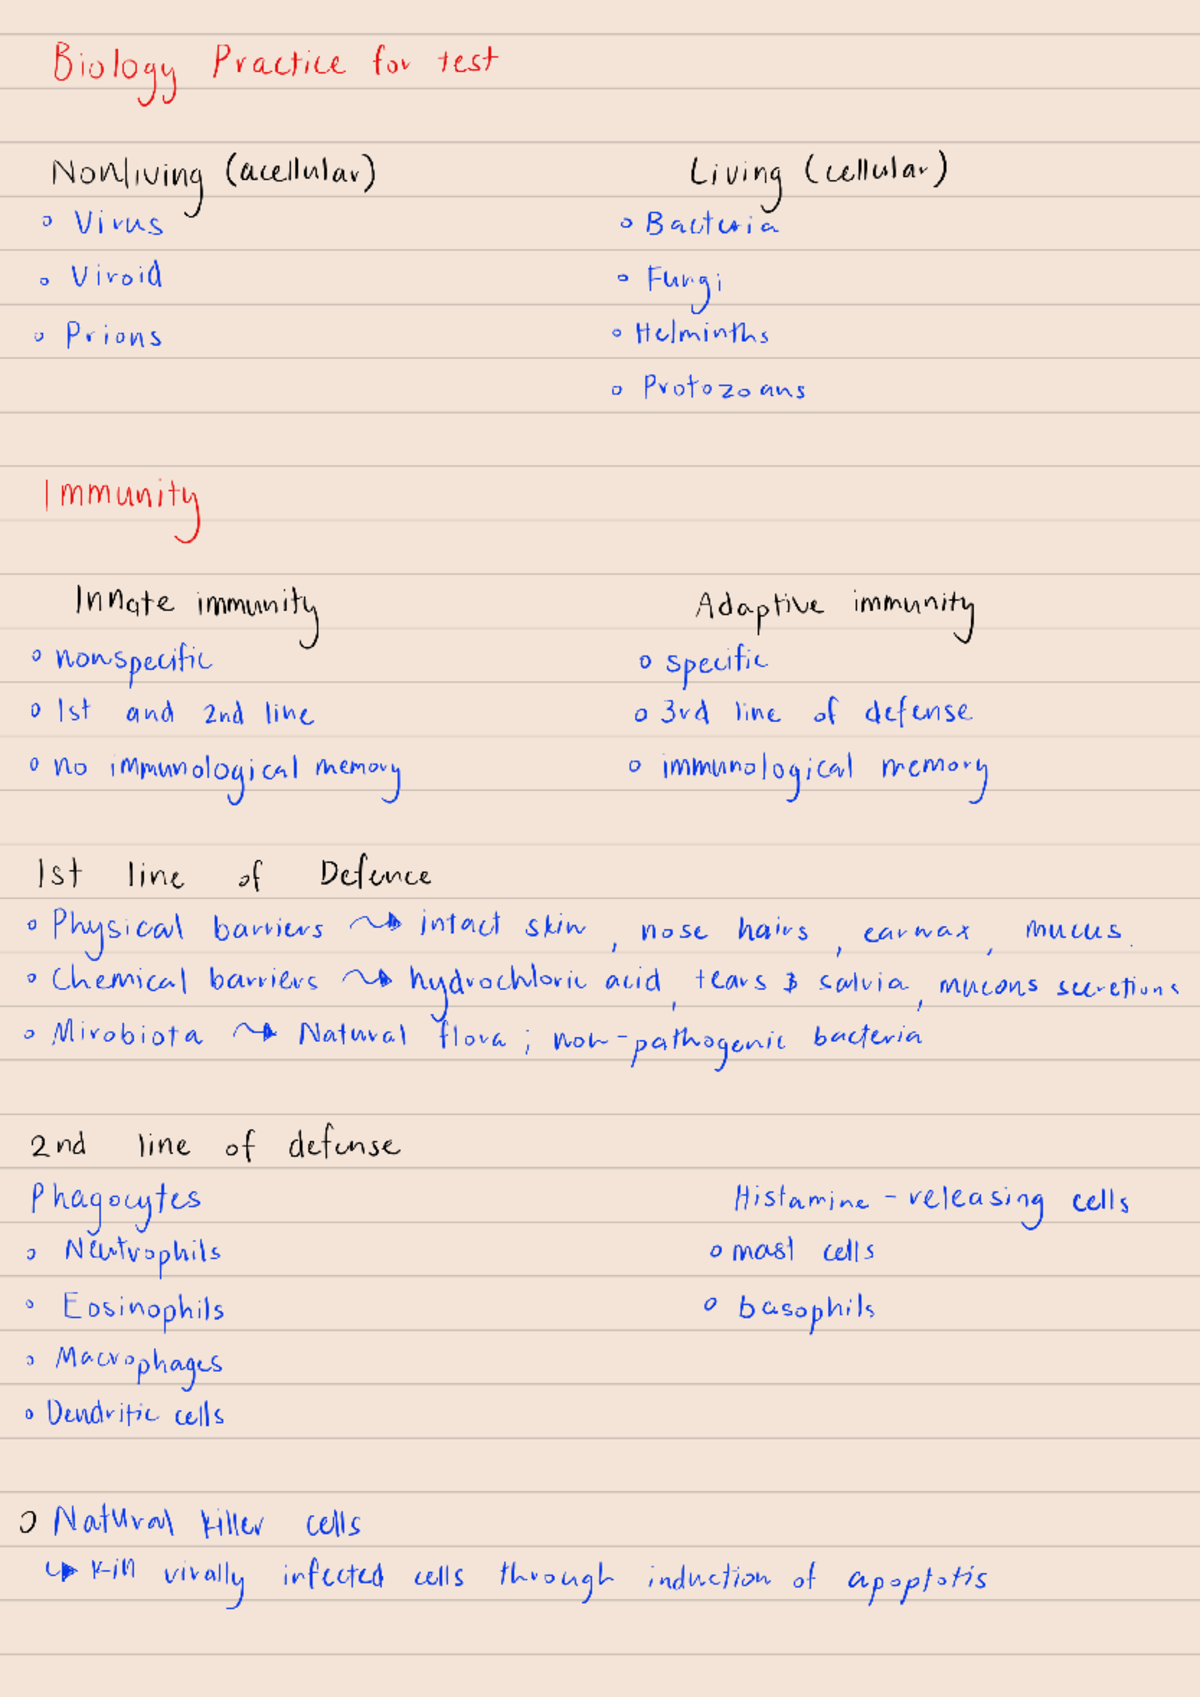 Biology Practice for test
Nonliving (acellular) Living (cellular)
Virus Bacteria
Viroid Fungi
Prions Helminths
Protozoans
Immunity
Innate immunity Adaptive immunity
nonspecific specific
1st and 2nd line 3rd line of defense
no immunological memory immunological memory
1st line of Defence
Physical barriers → intact skin, nose hairs, earwax, mucus.
Chemical barriers → hydrochloric acid, tears & salvia, mucous secretions
Mirobiota → Natural flora; non-pathogenic bacteria
2nd line of defense
Phagocytes Histamine-releasing cells
Neutrophils mast cells
Eosinophils basophils
Macrophages
Dendritic cells
Natural killer cells
↳ kill virally infected cells through induction of apoptotis